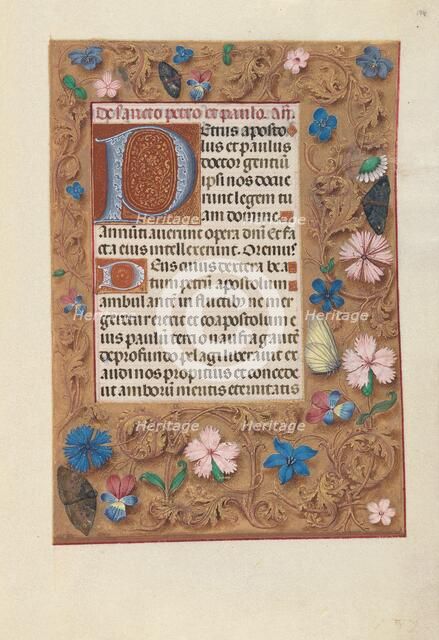 De sancto petro et paulo. Añ.
PEtrus aposto
lus et paulus
doctor gentiū
ipsi nos docue
runt legem tu
am domine.
Annūciauerunt opera dei Et fa
cta eius intellexerunt. Oremus
DEus cuius dextera bea
tum petrū apostolum
ambulantē in fluctibus ne mer
geretur erexit et coapostolum e
ius paulū tertio naufragantē
de profundo pelagi liberauit ex
audi nos propitius et concede
ut amborū meritis eternitatis
Heritage
Heritage
Heritage
Heritage
Heritage
Heritage